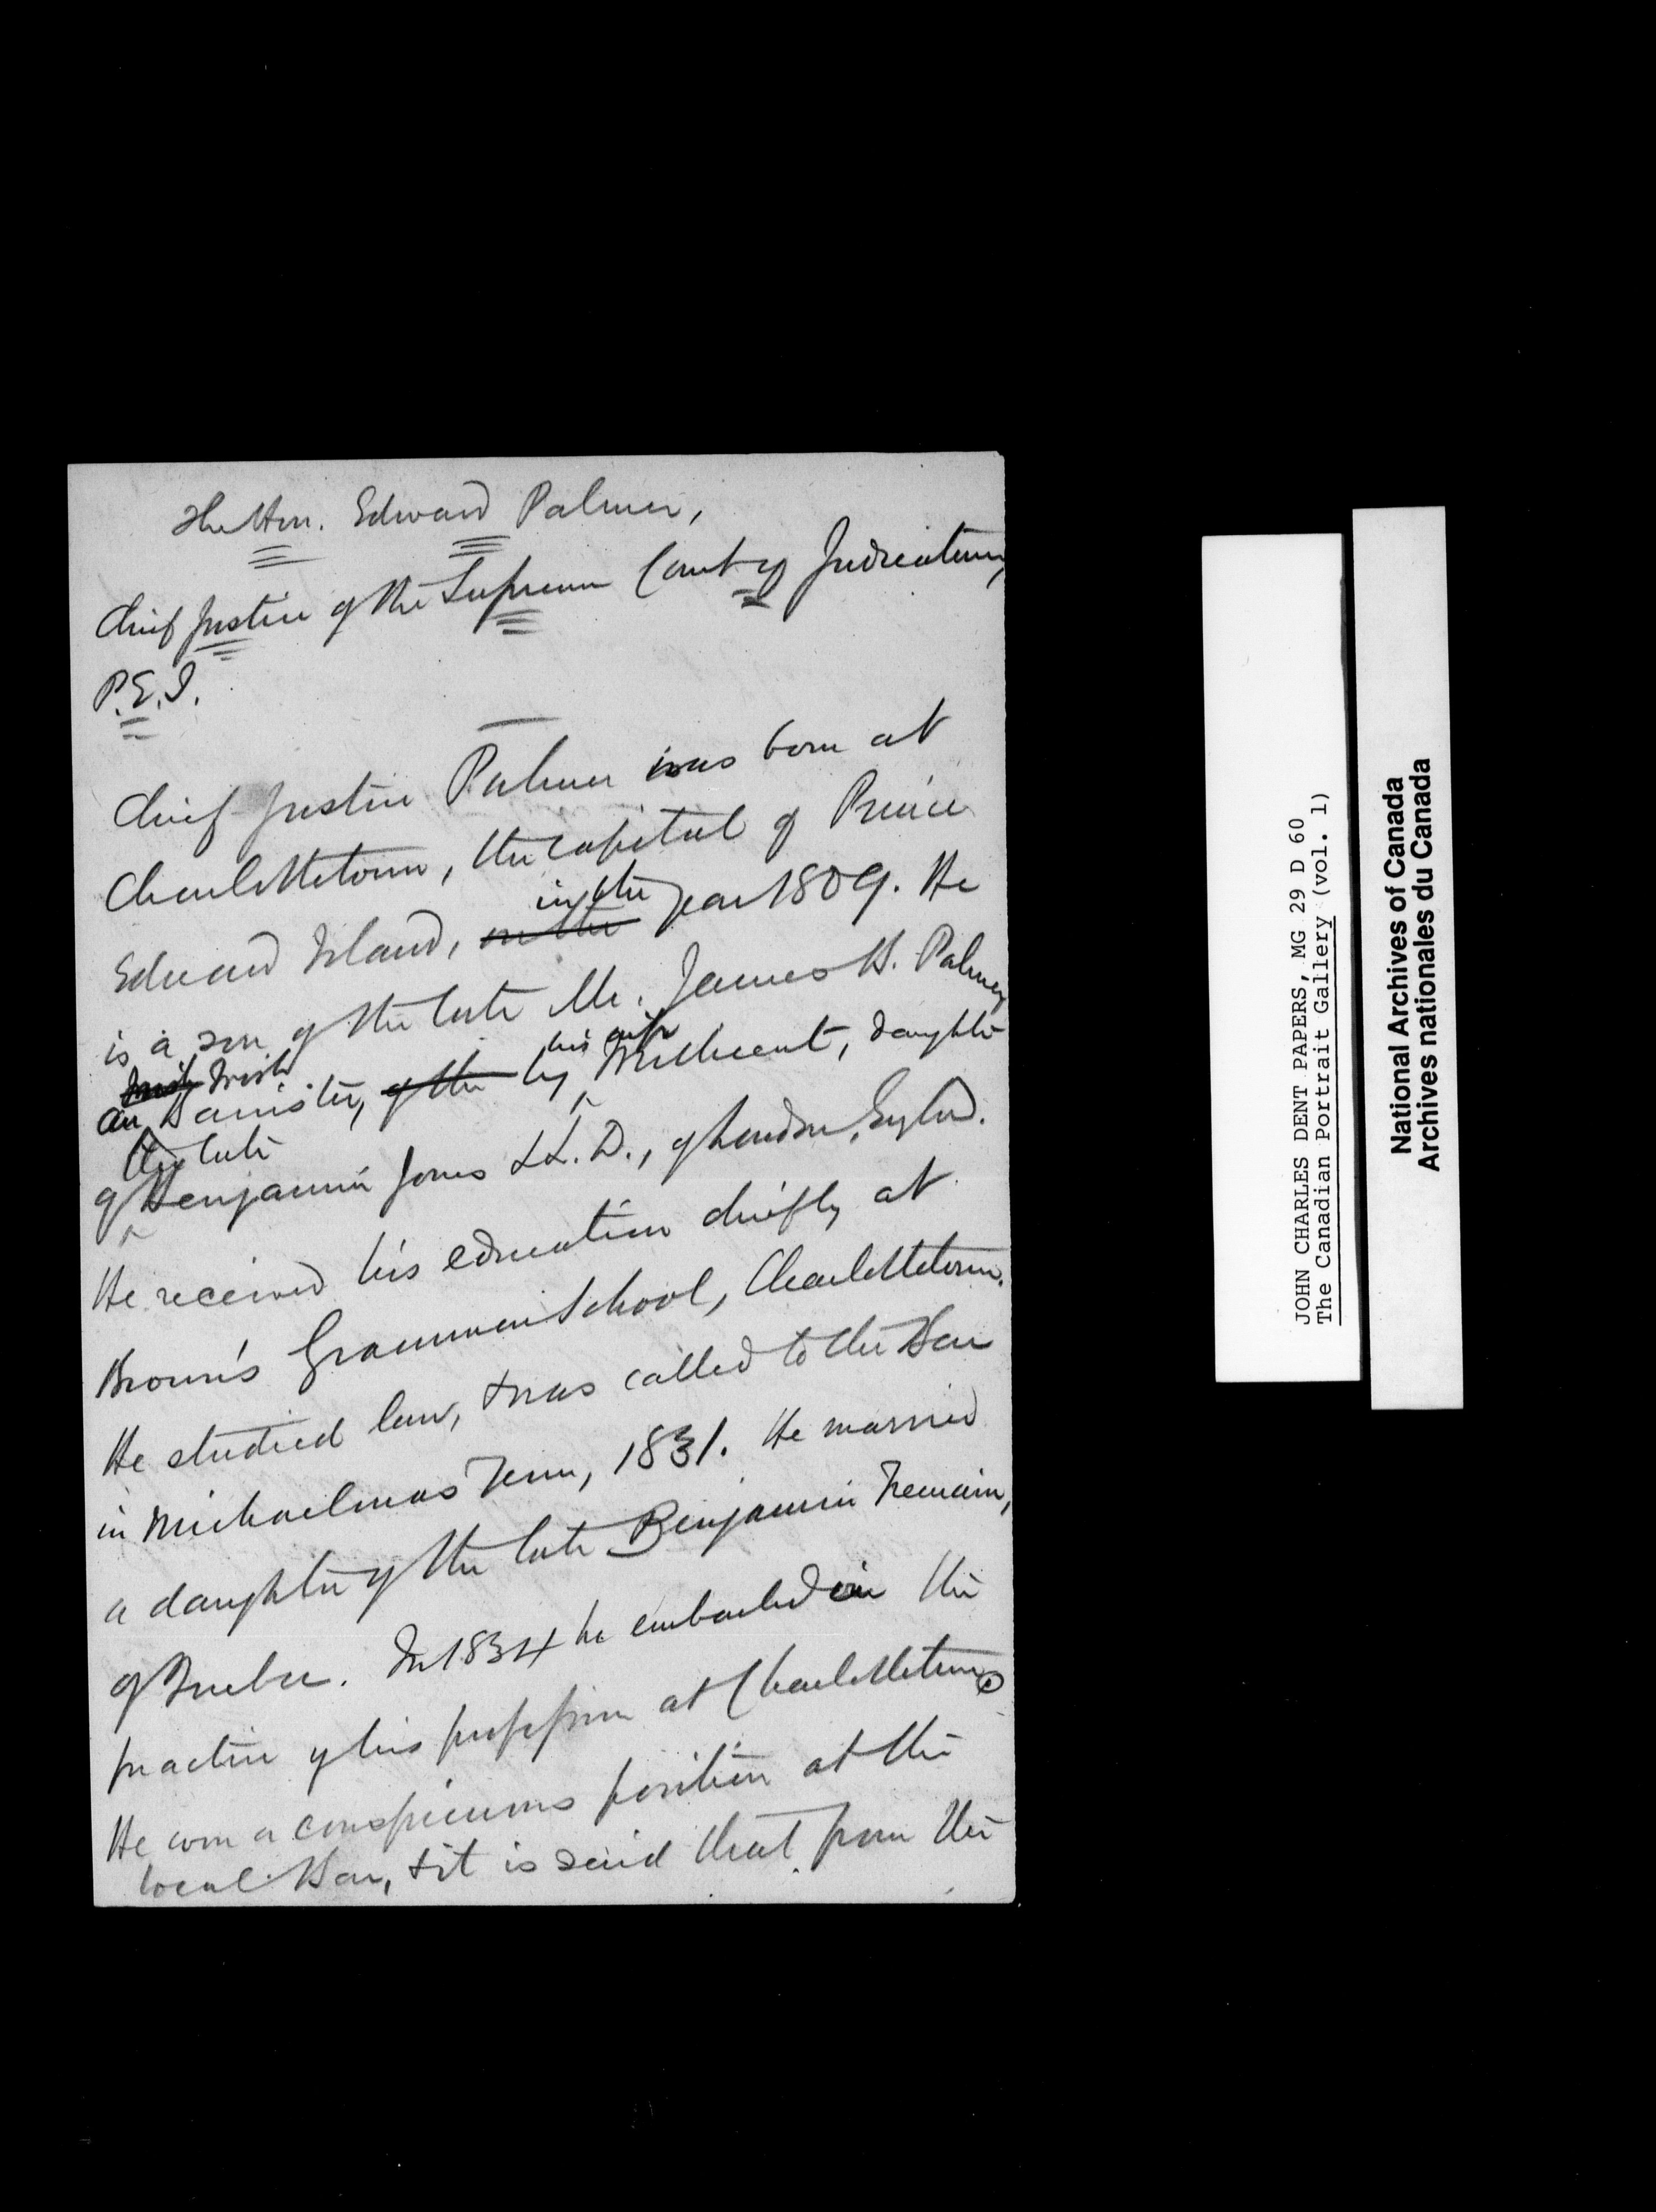 The Hon. Edward Palmer,
Chief Justice of the Supreme Court of Judicature,
P.E.I.
Chief Justice Palmer was born at
Charlottetown, the capital of Prince
in the
Edward Island, in the year 1809. He
is a son of the late Mr. James B. Palmer,
Irish his wife
an Barrister, of the by Millicent, daughter
the late
of Benjamin Jones LL.D., of London, Engld.
He received his education chiefly at
Brown's Grammar School, Charlottetown.
He studied law, & was called to the Bar
in Michaelmas Term, 1831. He married
a daughter of the late Benjamin Tremain,
of Quebec. In 1834 he embarked in the
practice of his profession at Charlottetown.
He won a conspicuous position at the
local Bar, & it is said that from the
JOHN CHARLES DENT PAPERS, MG 29 D 60
The Canadian Portrait Gallery (vol. 1)
National Archives of Canada
Archives nationales du Canada